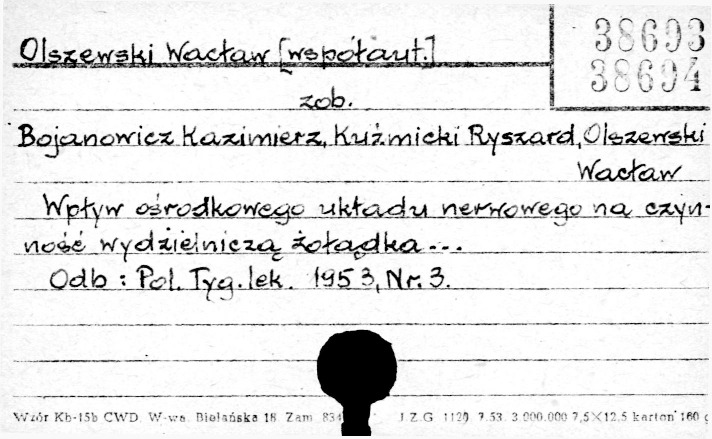 Olszewski Wacław [współaut.]
38693
38694
zob.
Bojanowicz Kazimierz, Kuźmicki Ryszard, Olszewski
Wacław
Wpływ ośrodkowego układu nerwowego na czyn-
ność wydzielniczą żołądka...
Odb : Pol. Tyg. lek. 1953, Nr. 3.
Wzór Kb-15b CWD, W-wa, Bielańska 18 Zam. 834 J.Z.G. 1129 7.53. 3.000.000 7,5×12,5 karton 160 g